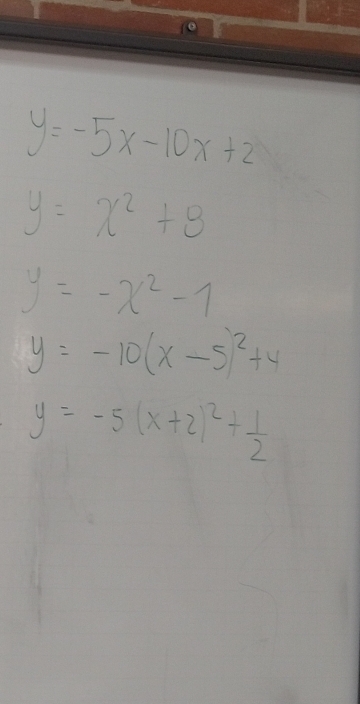 y = -5x - 10x + 2
y = x² + 8
y = -x² - 1
y = -10(x - 5)² + 4
y = -5(x + 2)² + 1/2